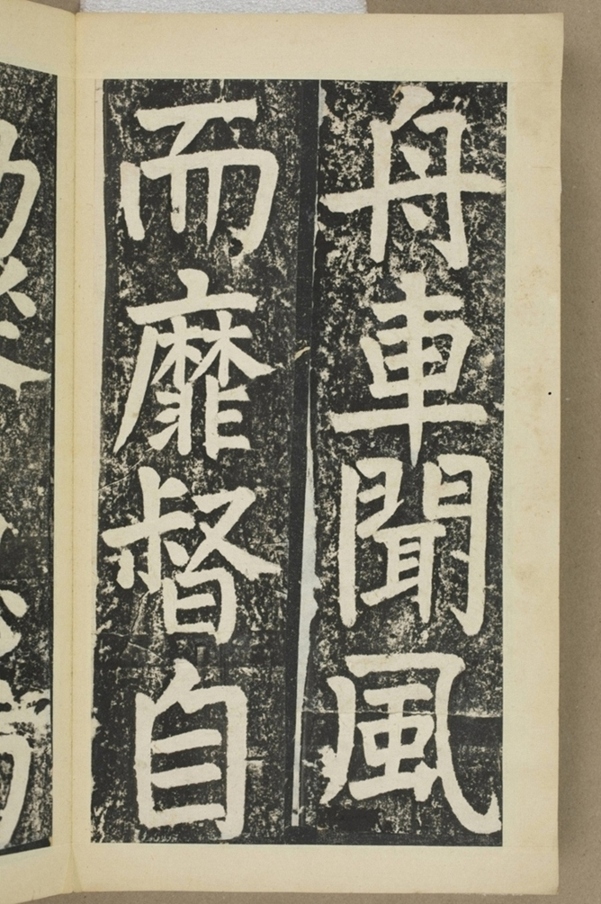 舟車聞風
而靡督自